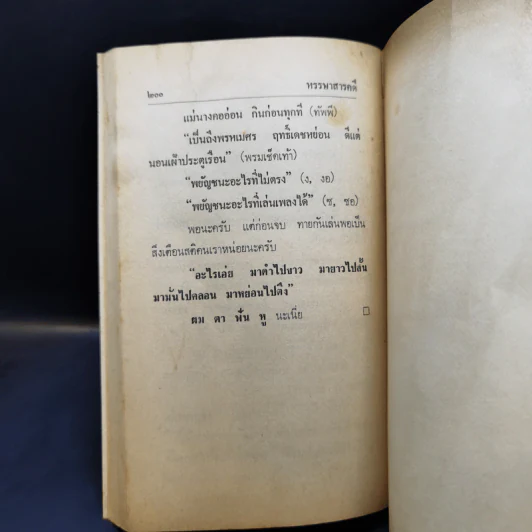 ๒๐๐ หรรษาสารคดี
แม่นางคออ่อน กินก่อนทุกที (ทัพพี)
“เป็นถึงพรหเมศร ฤทธิ์เดชหย่อน ดีแต่
นอนเฝ้าประตูเรือน” (พรมเช็ดเท้า)
“พยัญชนะอะไรที่ไม่ตรง” (ง, งอ)
“พยัญชนะอะไรที่เล่นเพลงได้” (ซ, ซอ)
พอนะครับ แต่ก่อนจบ ทายกันเล่นพอเป็น
สิ่งเตือนสติคนเราหน่อยนะครับ
“อะไรเอ่ย มาดำไปขาว มายาวไปสั้น
มามั่นไปคลอน มาหย่อนไปตึง”
ผม ตา ฟัน หู นะเนี่ย